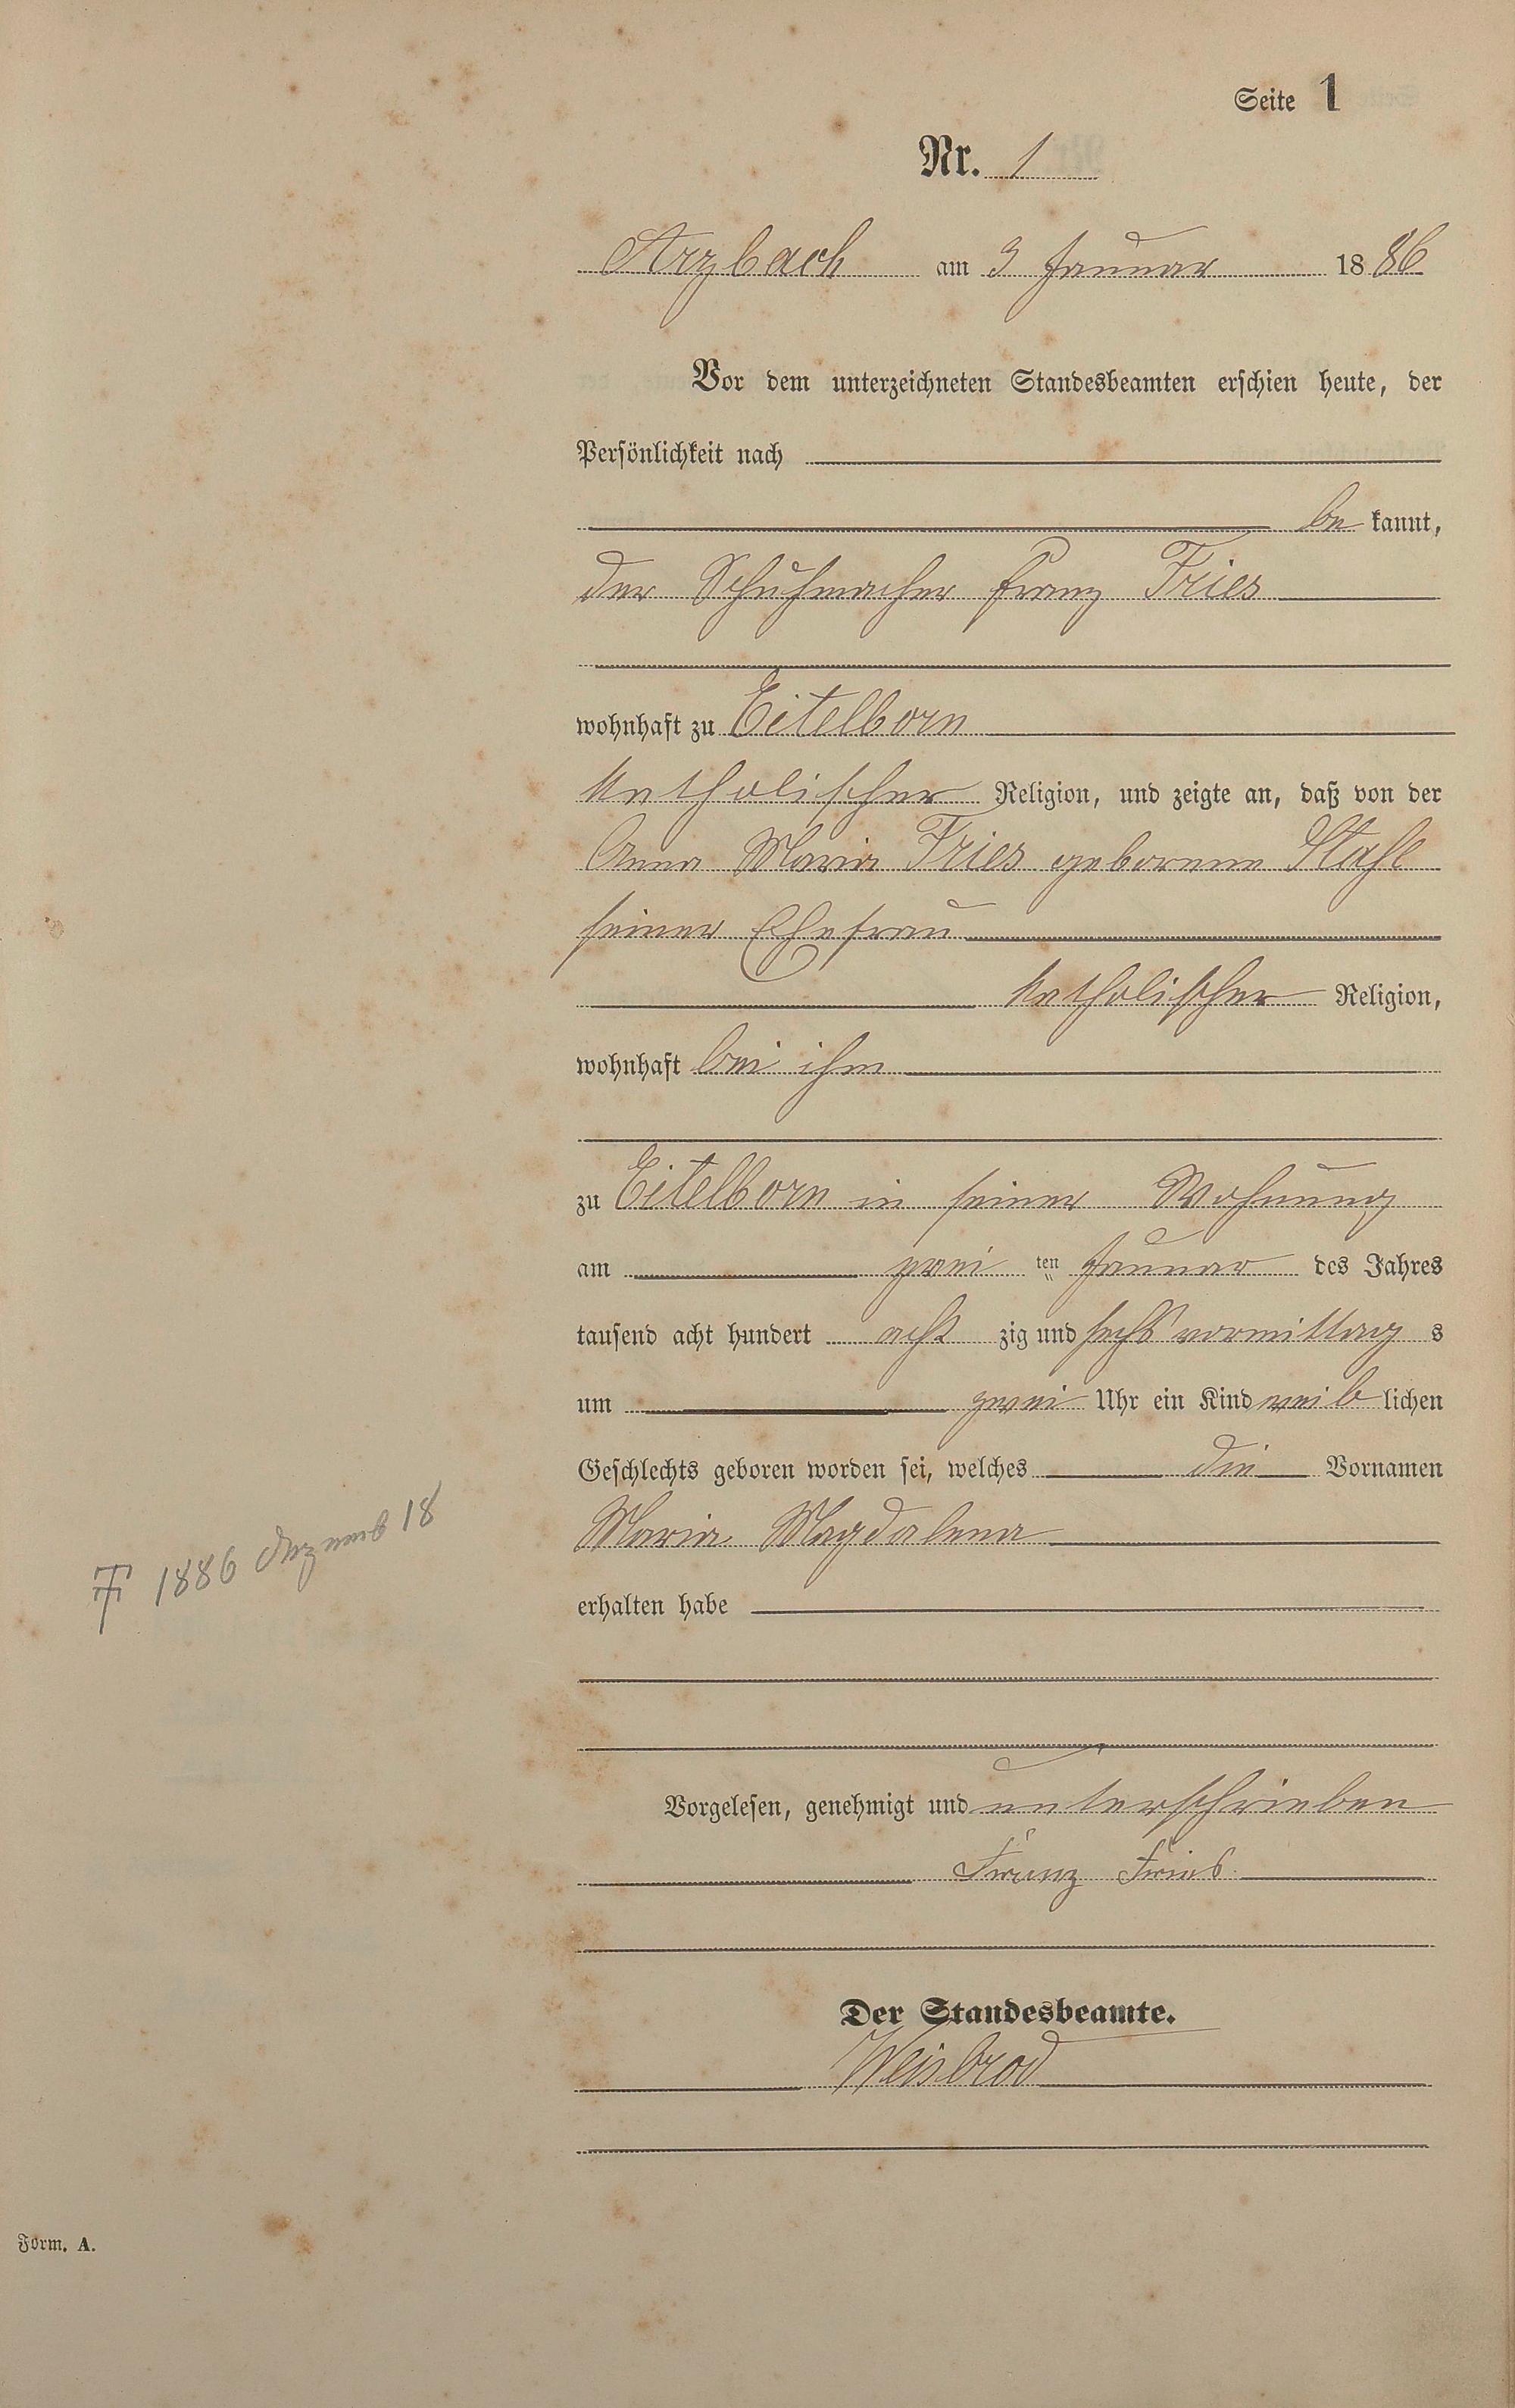 Seite 1
Nr. 1
Arzbach am 3 Januar 1886
Vor dem unterzeichneten Standesbeamten erschien heute, der
Persönlichkeit nach
be kannt,
der Schuhmacher Franz Fries
wohnhaft zu Eitelborn
katholischer Religion, und zeigte an, daß von der
Anna Maria Fries geborene Stahl
seiner Ehefrau
katholischer Religion,
wohnhaft bei ihm
zu Eitelborn in seiner Wohnung
am zwei ten Januar des Jahres
tausend acht hundert acht zig und sechs vormittag s
um zwei Uhr ein Kind weib lichen
Geschlechts geboren worden sei, welches die Vornamen
Maria Magdalena
† 1886 Dezemb 18
erhalten habe
Vorgelesen, genehmigt und unterschrieben
Franz Fries
Der Standesbeamte.
Weisbrod
Form. A.